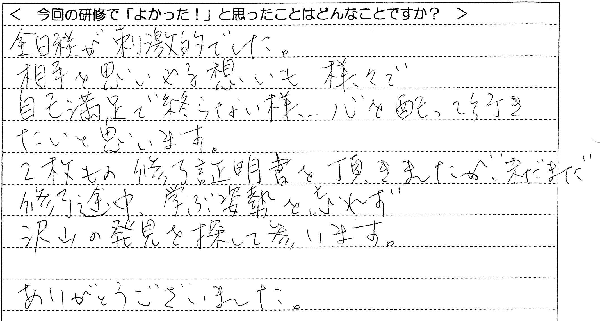 < 今回の研修で「よかった！」と思ったことはどんなことですか？ >
全日程が刺激的でした。
相手を思いやる想いも 様々で
自己満足で終らない様… 心を配って行き
たいと思います。
2枚もの修了証明書を頂きましたが、まだまだ
修了途中 学ぶ姿勢を忘れず
沢山の発見を探して参います。
ありがとうございました。